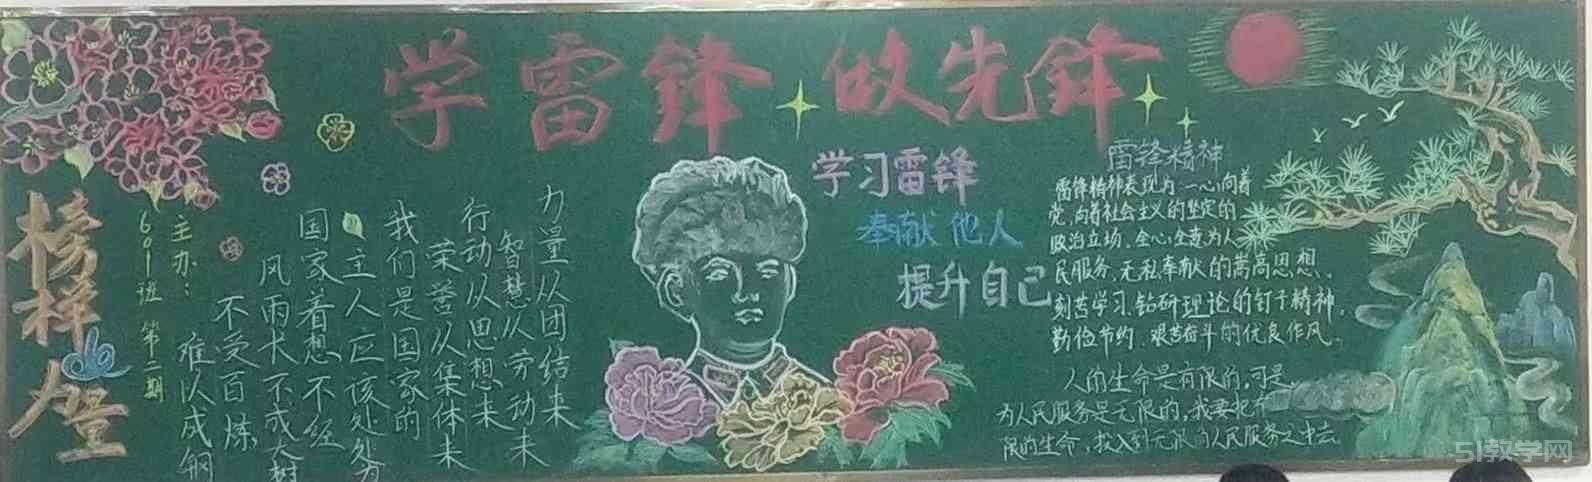 学雷锋 做先锋
榜样力量
主办:
601班 第二期
力量从团结来
智慧从劳动来
行动从思想来
荣誉从集体来
我们是国家的
主人应该处处为
国家着想不经
风雨长不成大树
不受百炼
难以成钢
学习雷锋
奉献他人
提升自己
雷锋精神
雷锋精神表现为一心向着
党、向着社会主义的坚定的
政治立场、全心全意为人
民服务、无私奉献的崇高思想、
刻苦学习、钻研理论的钉子精神，
勤俭节约、艰苦奋斗的优良作风。
人的生命是有限的，可是，
为人民服务是无限的，我要把有
限的生命，投入到无限的人民服务之中去
51教学网